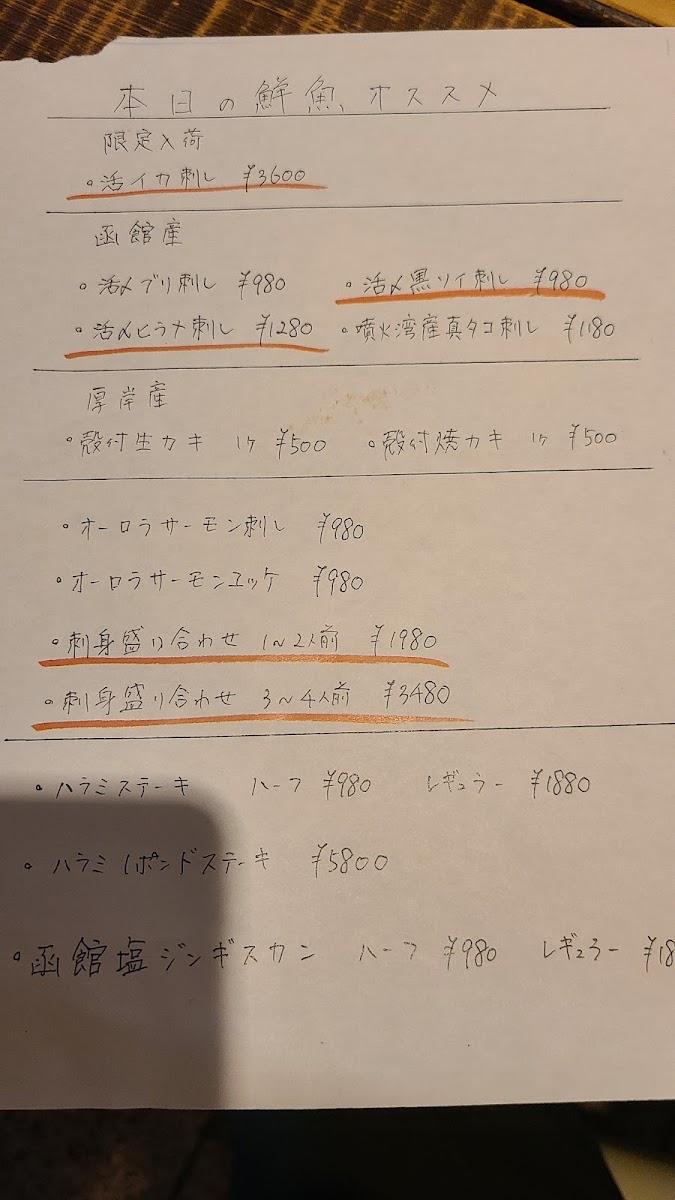 本日の鮮魚オススメ
限定入荷
・活イカ刺し ¥3600
函館産
・活〆ブリ刺し ¥980 ・活〆黒ソイ刺し ¥980
・活〆ヒラメ刺し ¥1280 ・噴火湾産真タコ刺し ¥1180
厚岸産
・殻付生カキ 1ヶ ¥500 ・殻付焼カキ 1ヶ ¥500
・オーロラサーモン刺し ¥980
・オーロラサーモンユッケ ¥980
・刺身盛り合わせ 1〜2人前 ¥1980
・刺身盛り合わせ 3〜4人前 ¥3480
・ハラミステーキ ハーフ ¥980 レギュラー ¥1880
・ハラミ1ポンドステーキ ¥5800
・函館塩ジンギスカン ハーフ ¥980 レギュラー ¥18